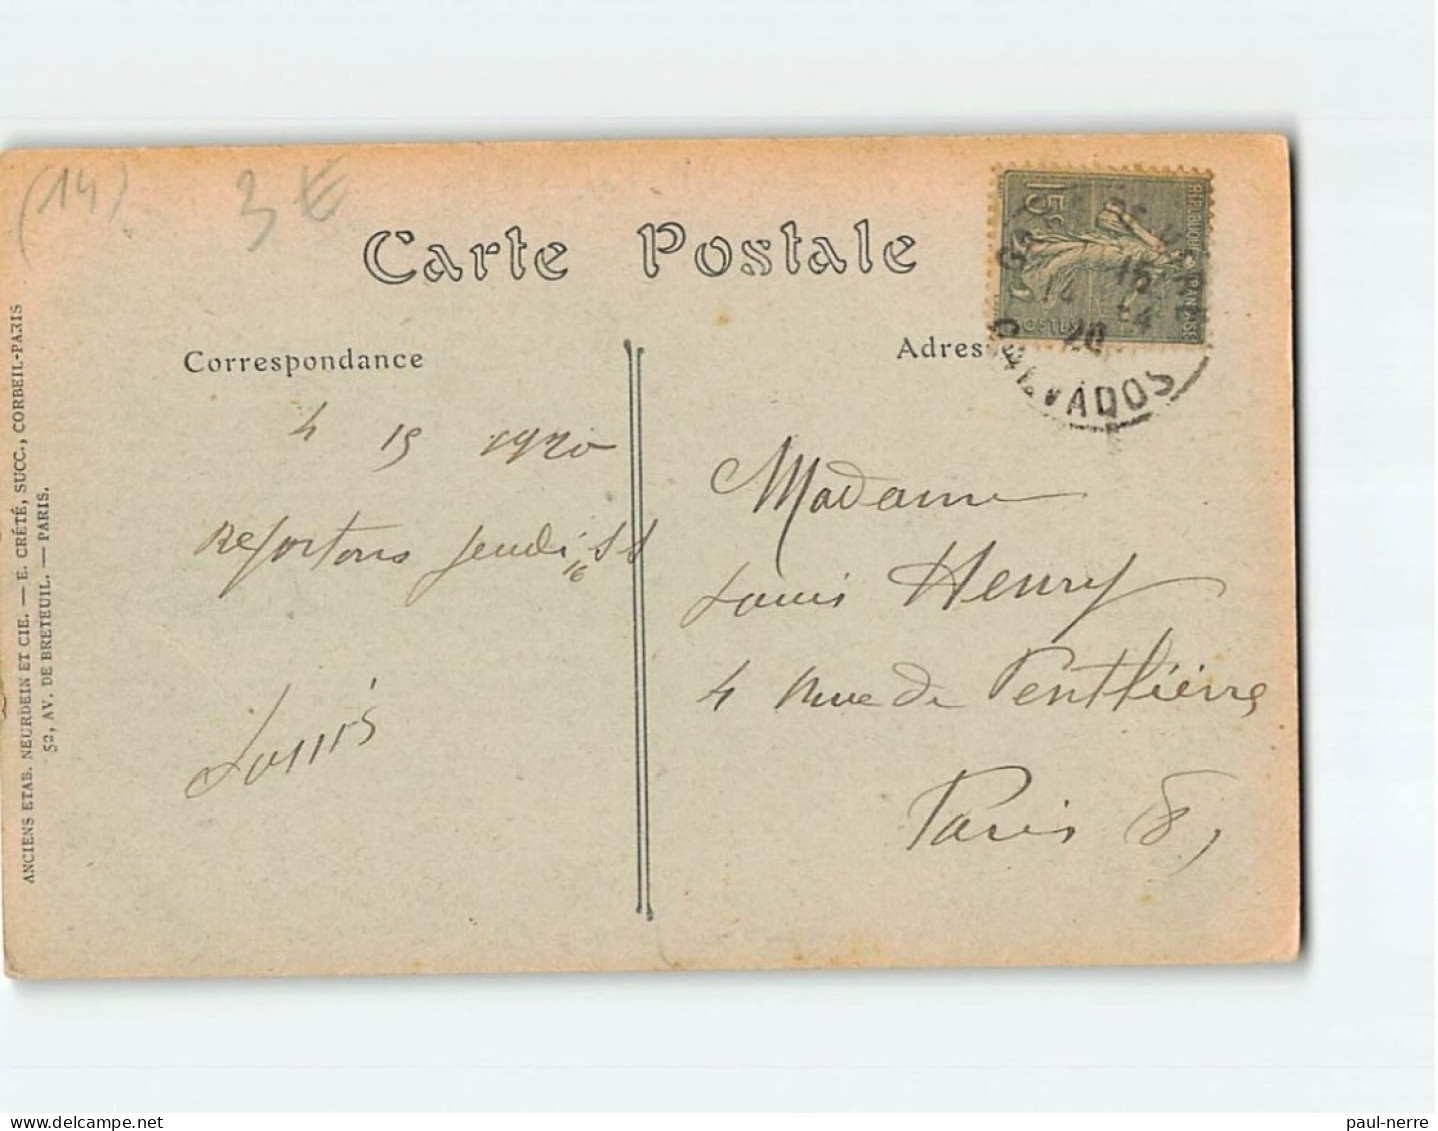 (14)
3 €
Carte Postale
Correspondance
Adres
15c
REPUBLIQUE FRANÇAISE
POSTES
15
14
20
CALVADOS
4 15 1920
Repartons jeudi
16
Louis
Madame
Louis Henry
4 Rue de Penthièvre
Paris 8
ANCIENS ETAB. NEURDEIN ET CIE. — E. CRÉTÉ, SUCC., CORBEIL-PARIS
52, AV. DE BRETEUIL. — PARIS.
paul-nerre